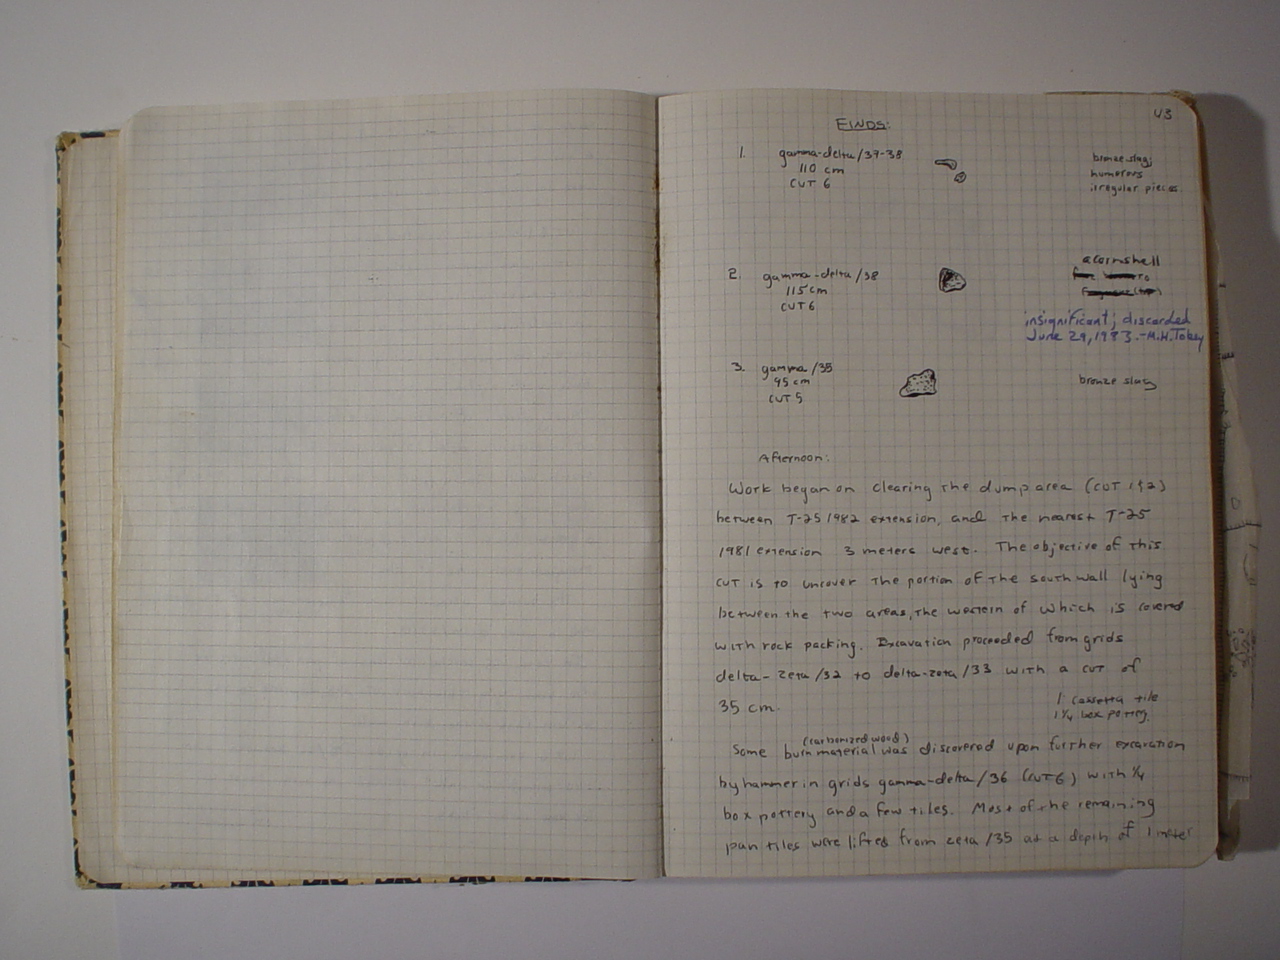 43
FINDS:
1. gamma-delta/37-38
110 cm
CUT 6
bronze slag;
numerous
irregular pieces
2. gamma-delta/38
115 cm
CUT 6
acornshell
insignificant; discarded
June 29, 1983.-M.H.Tobey
3. gamma/35
95 cm
CUT 5
bronze slag
Afternoon:
Work began on clearing the dump area (CUT 1&2)
between T-25 1982 extension, and the nearest T-25
1981 extension 3 meters west. The objective of this
cut is to uncover the portion of the south wall lying
between the two areas, the western of which is covered
with rock packing. Excavation proceeded from grids
delta-zeta/32 to delta-zeta/33 with a cut of
35 cm.
1 cassetta tile
1 1/4 box pottery
(carbonized wood)
Some burn material was discovered upon further excavation
by hammer in grids gamma-delta/36 (CUT 6) with 1/4
box pottery and a few tiles. Most of the remaining
pan tiles were lifted from zeta/35 at a depth of 1 meter